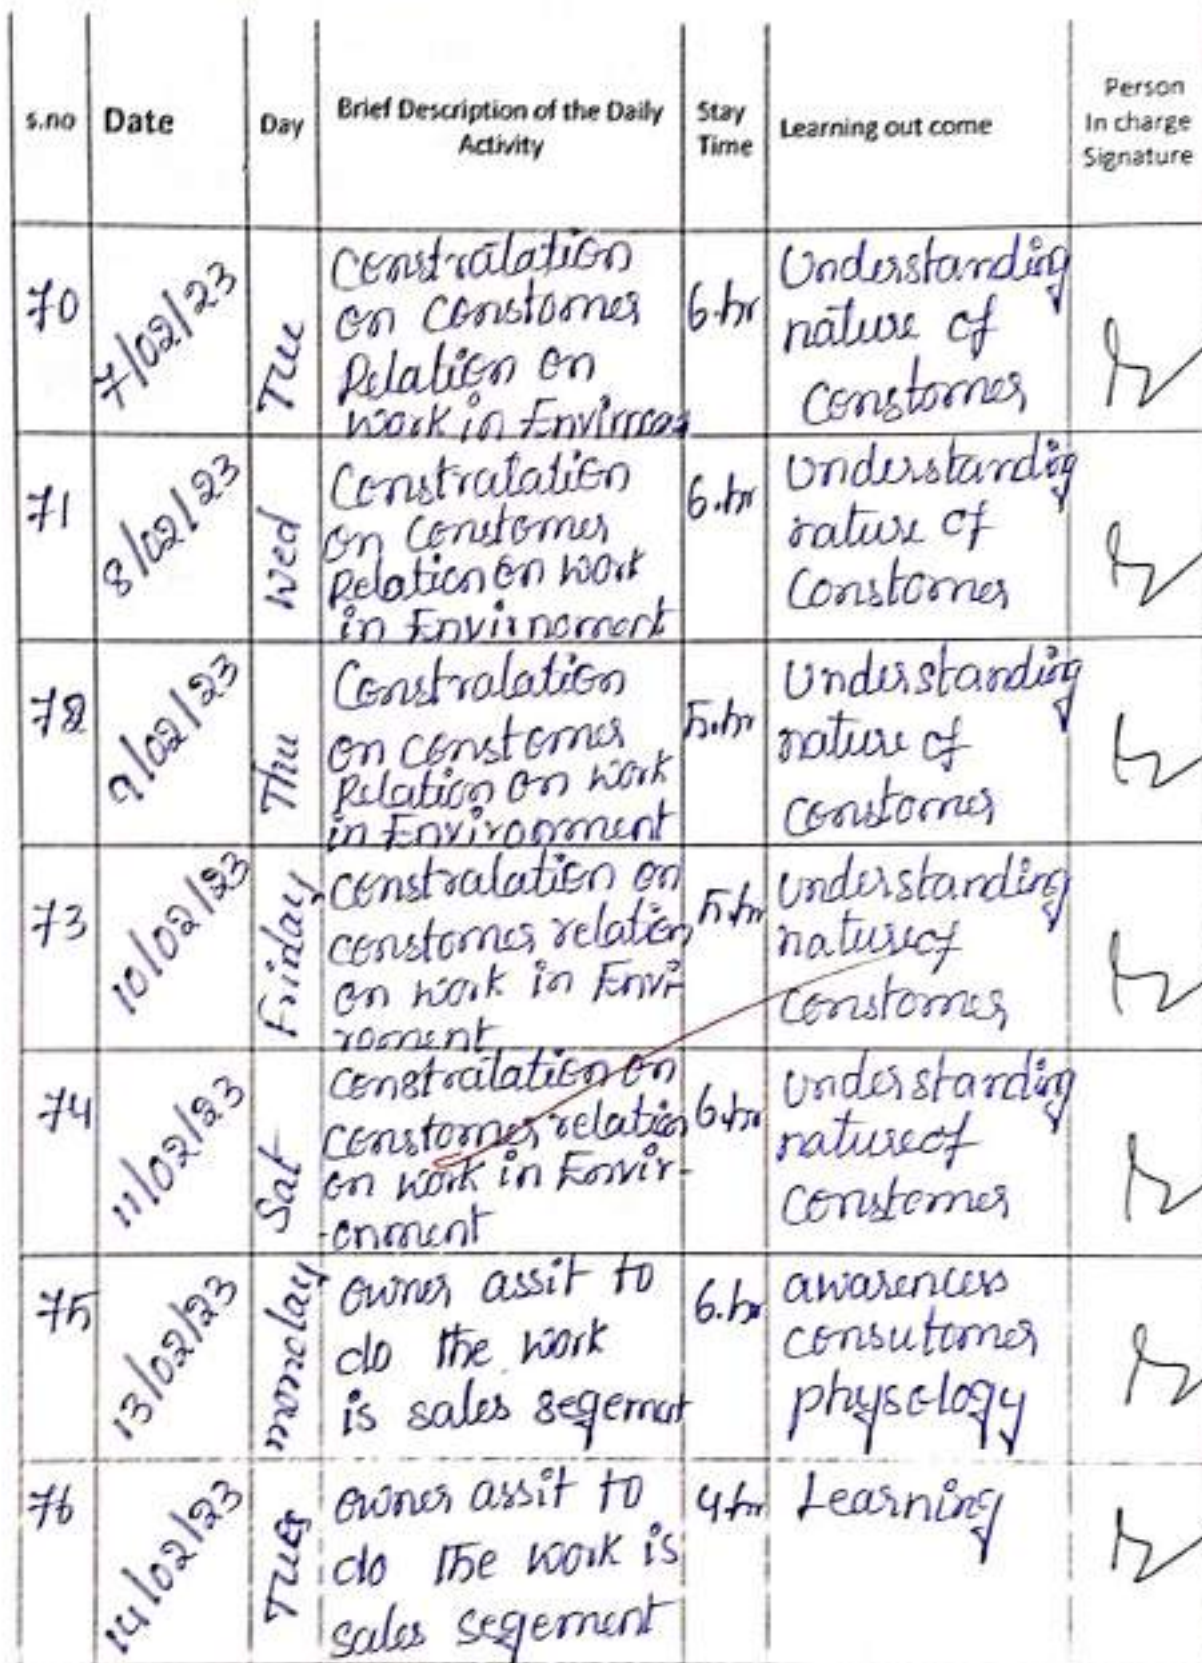 s.no Date Day Brief Description of the Daily Activity Stay Time Learning out come Person In charge Signature
70 7/02/23 Tue
Constralation
on constomer
Relation on
work in
6.hr
Understanding
nature of
constomer
71 8/02/23 Wed
Constralation
on constomer
Relation on work
in Envirnoment
6.hr
Understanding
nature of
constomer
72 9/02/23 Thu
Constralation
on constomer
Relation on work
in Environment
5.hr
Understanding
nature of
constomer
73 10/02/23 Friday
constralation on
constomer relation
on work in Envi-
roment
5.hr
understanding
nature of
constomer
74 11/02/23 Sat
constralation on
constomer relation
on work in Envir-
-onment
6.hr
understanding
nature of
constomer
75 13/02/23 monday
owner assit to
do the work
is sales
6.hr
awareness
consutomer
physology
76 14/02/23 Tues
owner assit to
do the work is
sales segement
4.hr
Learning